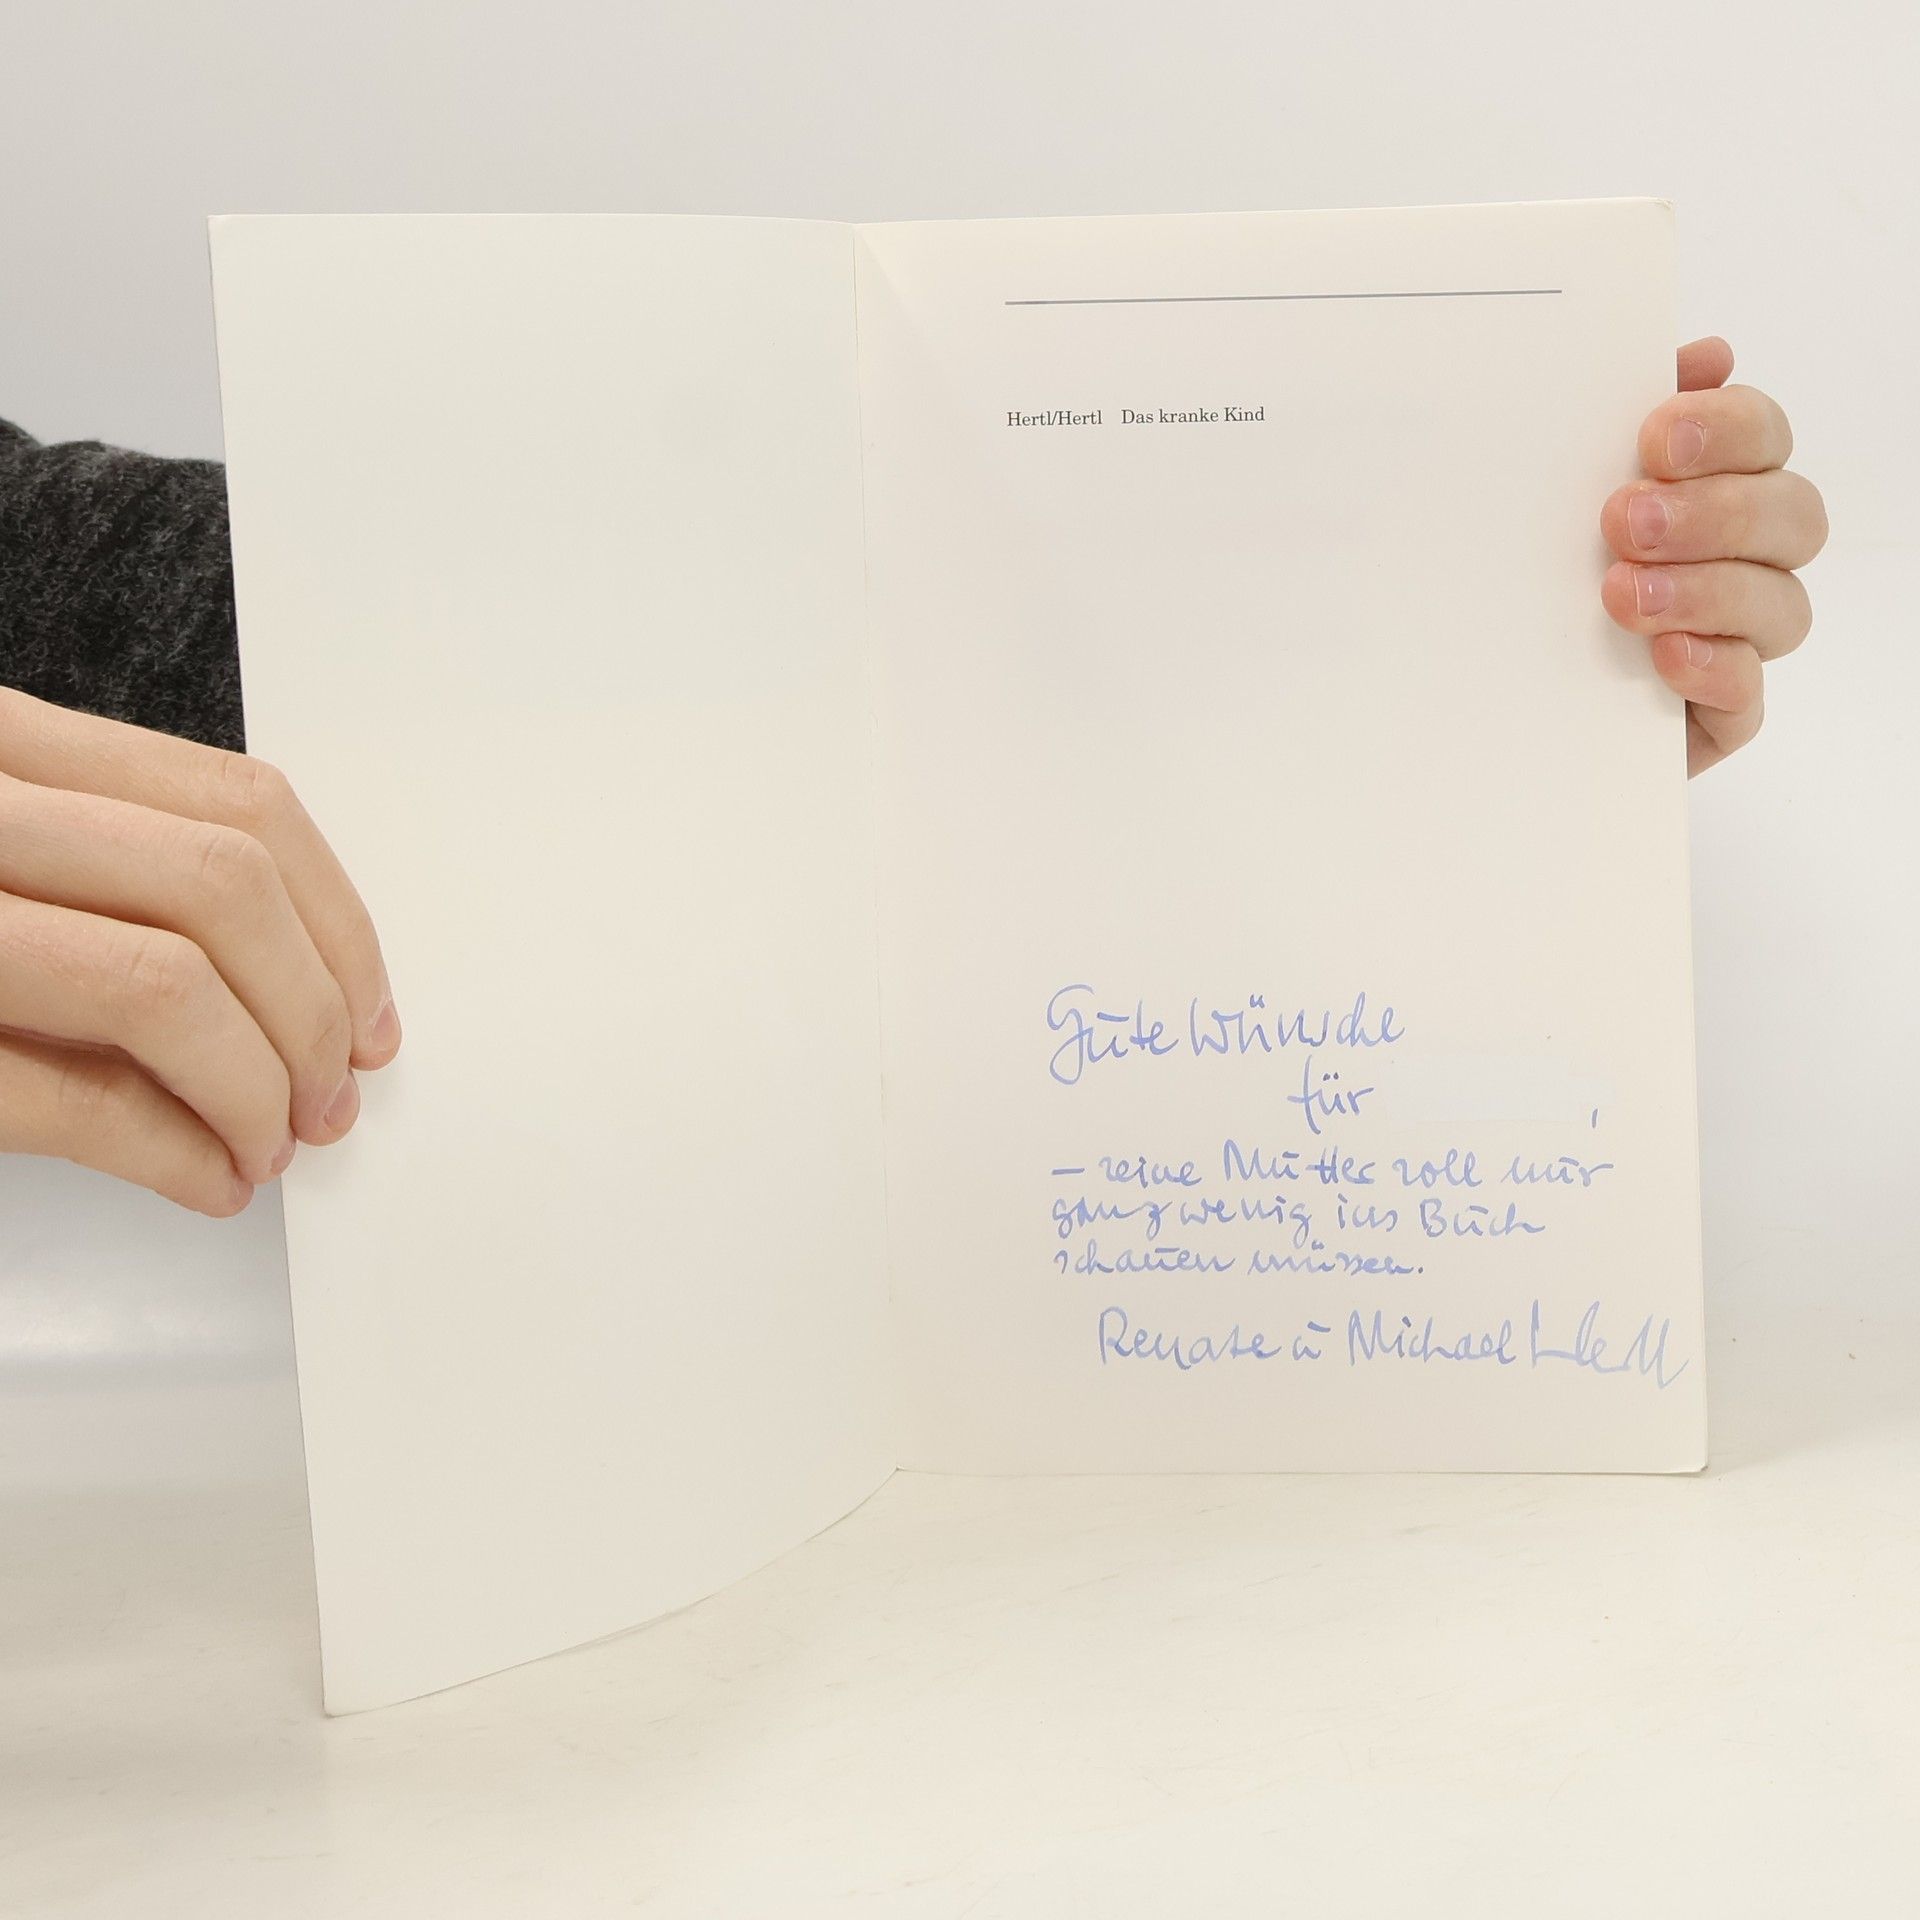 Hertl/Hertl Das kranke Kind
Gute Wünsche
für ,
– seine Mutter soll nur
ganz wenig ins Buch
schauen müssen.
Renate u Michael Hertl